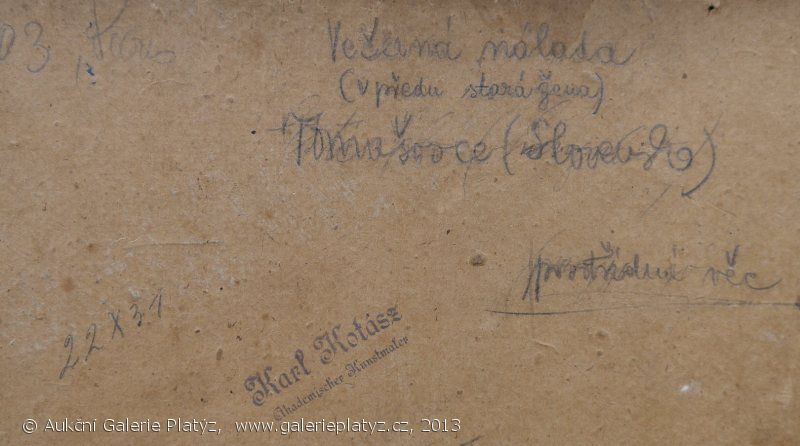 03
Večerná nálada
(v předu stará žena)
Tomašovce (Slovensko)
prostřední věc
22x31
Karl Kotász
Akademischer Kunstmaler
© Aukční Galerie Platýz, www.galerieplatyz.cz, 2013